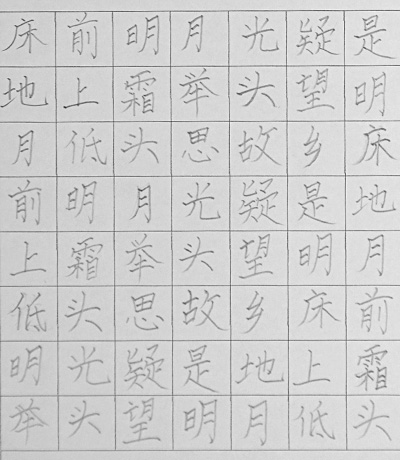 床前明月光疑是
地上霜举头望明
月低头思故乡床
前明月光疑是地
上霜举头望明月
低头思故乡床前
明光疑是地上霜
举头望明月低头